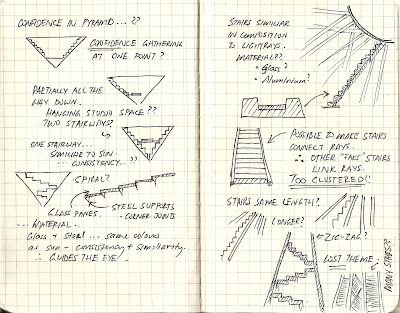 CONFIDENCE IN PYRAMID... ??
CONFIDENCE GATHERING
AT ONE POINT?
PARTIALLY ALL THE
WAY DOWN.
HANGING STUDIO SPACE??
TWO STAIRWAYS?
ONE STAIRWAY...
SIMILAR TO SUN-
CONSISTENCY...??
SPIRAL?
GLASS PANES.
STEEL SUPPORTS
- CORNER JOINTS
... MATERIAL...
Glass & Steel... same colours
as sun - consistency & similarity.
∴ GUIDES THE EYE!
STAIRS SIMILIAR
IN COMPOSITION
TO LIGHTRAYS.
MATERIAL??
• Glass?
• Aluminium?
POSSIBLE TO MAKE STAIRS
CONNECT RAYS.
∴ OTHER "FAKE" STAIRS
LINK RAYS.
TOO CLUSTERED!
STAIRS SAME LENGTH?
LONGER?
ZIG-ZAG?
LOST THEME.
MANY STAIRS??